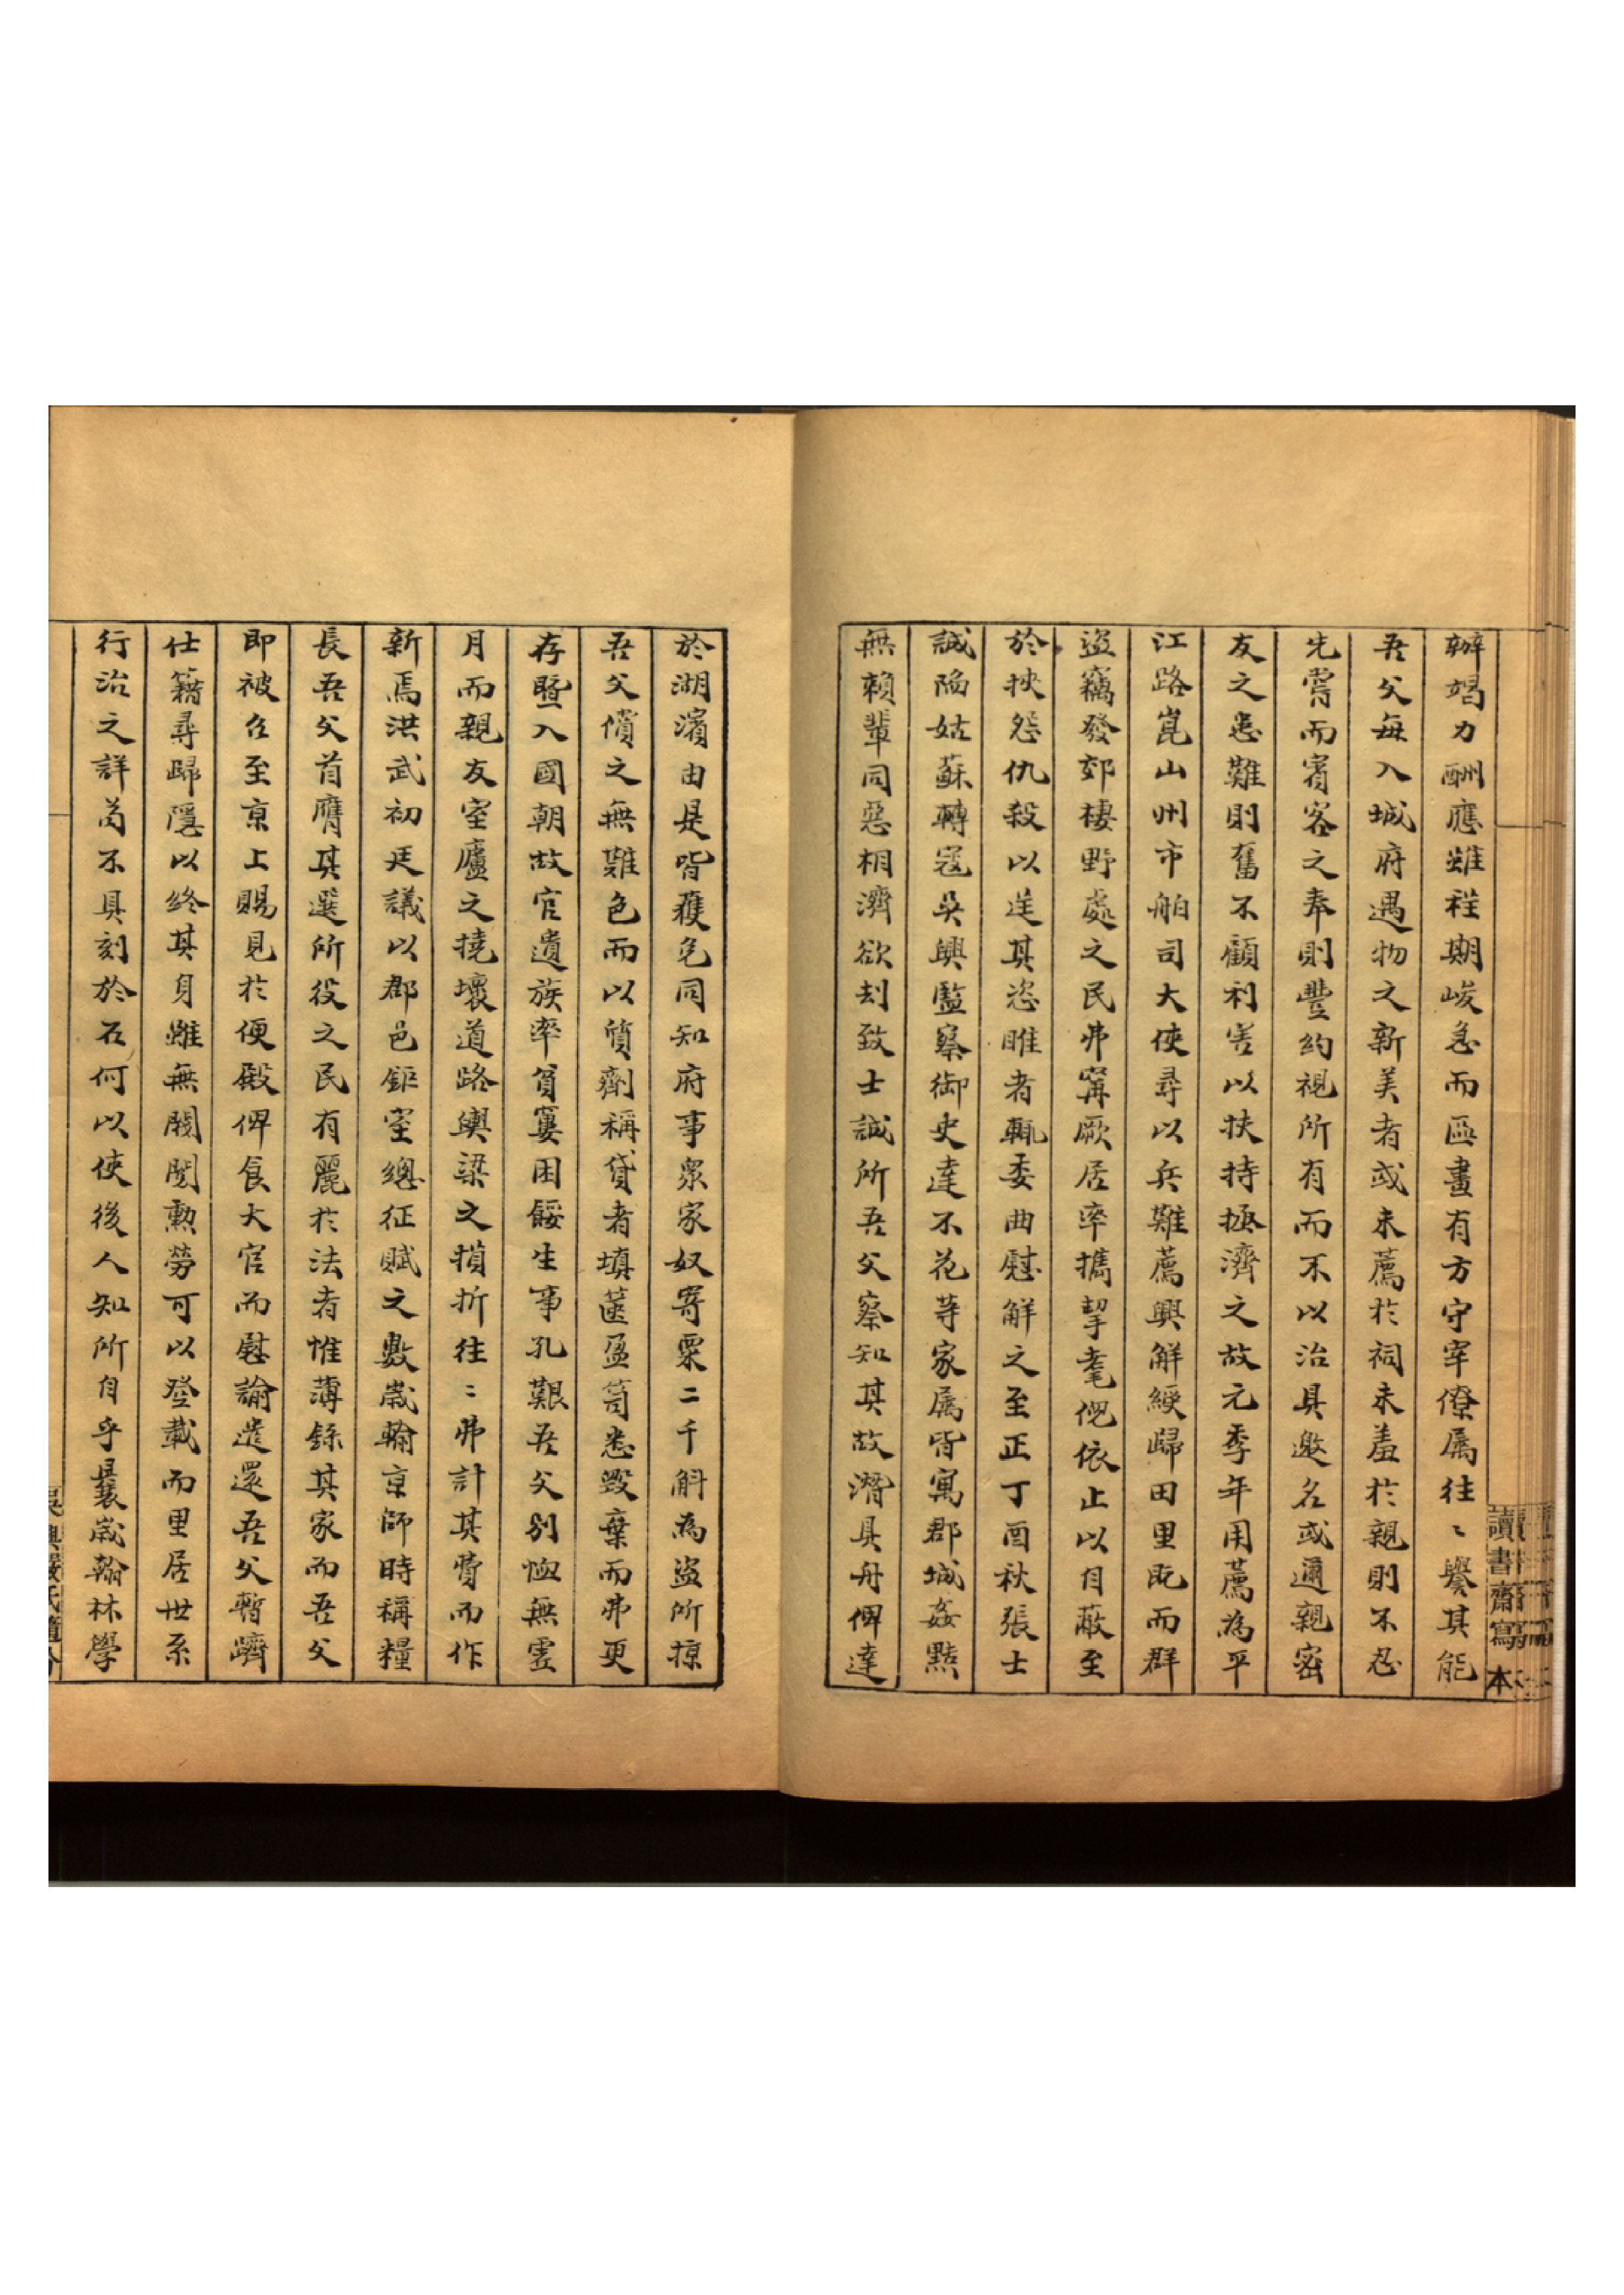 辦竭力酬應雖程期峻急而區畫有方守宰僚属往〻譽其能
吾父每入城府遇物之新美者或未薦於祠未羞於親則不忍
先嘗而賓客之奉則豐約視所有而不以治具邀名或遇親密
友之患難則奮不顧利害以扶持拯濟之故元季年用薦為平
江路崑山州市舶司大使尋以兵難薦興解綬歸田里旣而群
盗竊發郊棲野處之民弗寗厥居率攜挈耄倪依止以自蔽至
於挾怨仇殺以逞其恣睢者輒委曲慰解之至正丁酉秋張士
誠陷姑蘇轉冦吳興監察御史達不花等家属皆寓郡城姦黠
無賴輩同惡相濟欲刦致士誠所吾父察知其故潛具舟俾達
於湖濱由是皆獲免同知府事衆家奴寄粟二千斛為盗所掠
吾父償之無難色而以質劑稱貸者填篋盈笥悉毀棄而弗更
存曁入國朝故官遺族率貧窶困餒生事孔艱吾父别恤無虚
月而親友室廬之撓壞道路輿梁之損折往〻弗計其費而作
新焉洪武初廷議以郡邑鉅室總征賦之數歲輸京師時稱糧
長吾父首膺其選所役之民有麗於法者惟薄錄其家而吾父
即被召至京上賜見於便殿俾食大官而慰諭遣還吾父暫躋
仕籍尋歸隱以終其身雖無閥閱勲勞可以登載而里居世系
行治之詳苟不具刻於石何以使後人知所自乎曩歲翰林學
讀書齋寫本